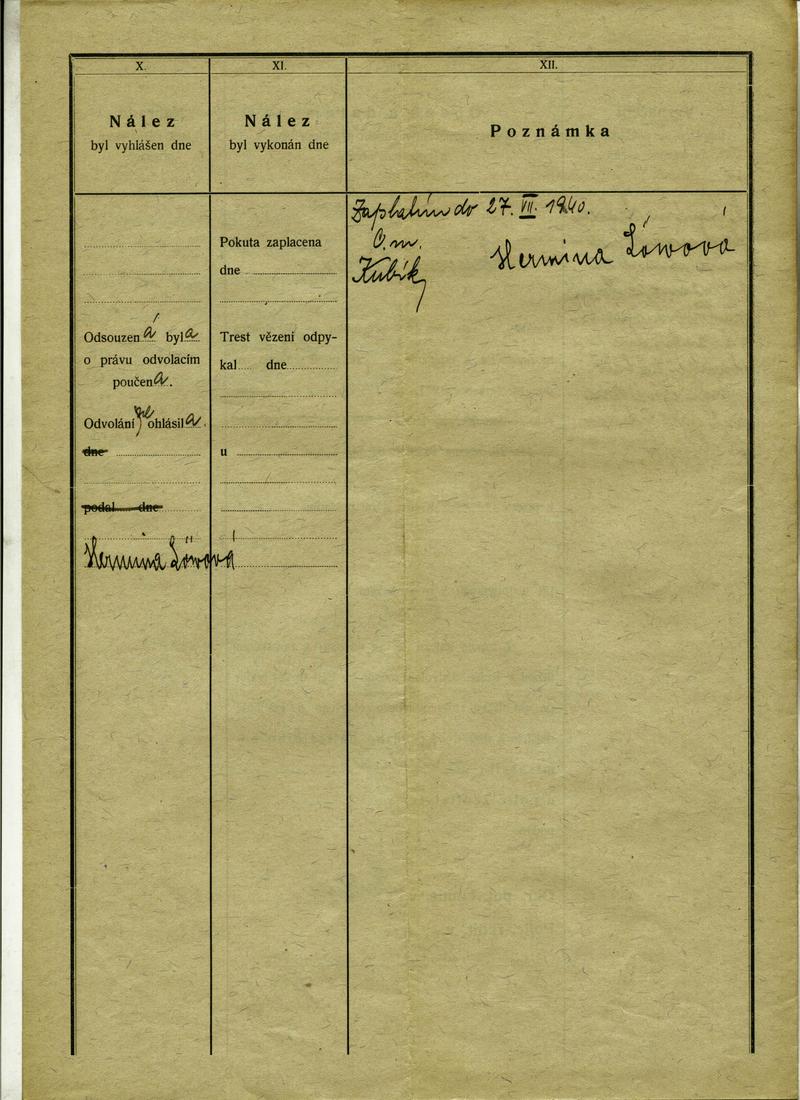 X.
XI.
XII.
Nález
byl vyhlášen dne
Nález
byl vykonán dne
Poznámka
Odsouzena byla
o právu odvolacím
poučena.
Odvolání ohlásila.
dne
podal dne
Hermina Löwová
Pokuta zaplacena
dne
Trest vězení odpy-
kal dne
u
Zaplatím do 27. VII. 1940.
Kubík
Hermina Löwová